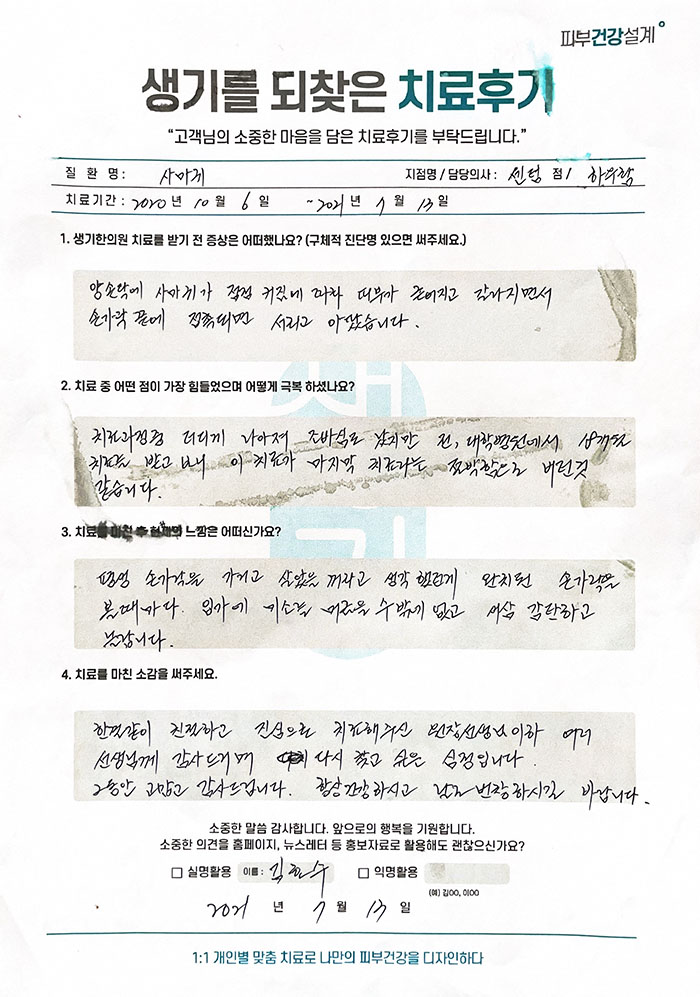 피부건강설계
생기를 되찾은 치료후기
“고객님의 소중한 마음을 담은 치료후기를 부탁드립니다.”
질 환 명 : 사마귀 지점명 / 담당의사 : 센텀 점 / 하우람
치료기간 : 2020 년 10 월 6 일 ~2021 년 7 월 13 일
1. 생기한의원 치료를 받기 전 증상은 어떠했나요? (구체적 진단명 있으면 써주세요.)
양손악에 사마귀가 점점 커짐에 따라 피부가 굳어지고 갈라지면서
손가락 끝에 접촉되면 시리고 아팠습니다.
2. 치료 중 어떤 점이 가장 힘들었으며 어떻게 극복 하셨나요?
치료과정중 더디게 나아져 조바심도 났지만 전, 대학병원에서 18개월
치료를 받고 보내 이 치료가 마지막 치료라는 절박함으로 버틴것
같습니다.
3. 치료를 마친 후 현재의 느낌은 어떠신가요?
평생 손가락을 가리고 살았을 꺼라고 생각 했는데 완치된 손가락을
볼때마다 입가에 미소를 머금을 수 밖에 없고 새삼 감탄하고
놀랍니다.
4. 치료를 마친 소감을 써주세요.
한결같이 친절하고 진심으로 치료해주신 원장선생님이하 여러
선생님께 감사드리며 다시 찾고 싶은 심정입니다.
그동안 고맙고 감사드립니다. 항상건강하시고 날로 번창하시길 바랍니다.
소중한 말씀 감사합니다. 앞으로의 행복을 기원합니다.
소중한 의견을 홈페이지, 뉴스레터 등 홍보자료로 활용해도 괜찮으신가요?
실명활용 이름 : 김한수 익명활용
(예) 김OO, 이OO
2021 년 7 월 13 일
1:1 개인별 맞춤 치료로 나만의 피부건강을 디자인하다